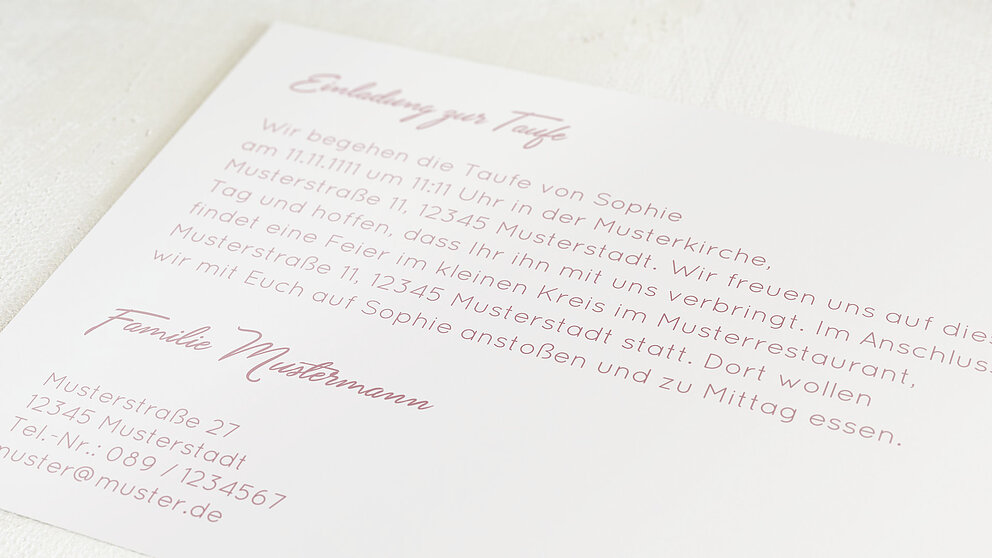 Einladung zur Taufe
Wir begehen die Taufe von Sophie
am 11.11.1111 um 11:11 Uhr in der Musterkirche,
Musterstraße 11, 12345 Musterstadt. Wir freuen uns auf dies
Tag und hoffen, dass Ihr ihn mit uns verbringt. Im Anschlus
findet eine Feier im kleinen Kreis im Musterrestaurant,
Musterstraße 11, 12345 Musterstadt statt. Dort wollen
wir mit Euch auf Sophie anstoßen und zu Mittag essen.
Familie Mustermann
Musterstraße 27
12345 Musterstadt
Tel.-Nr.: 089 / 1234567
muster@muster.de